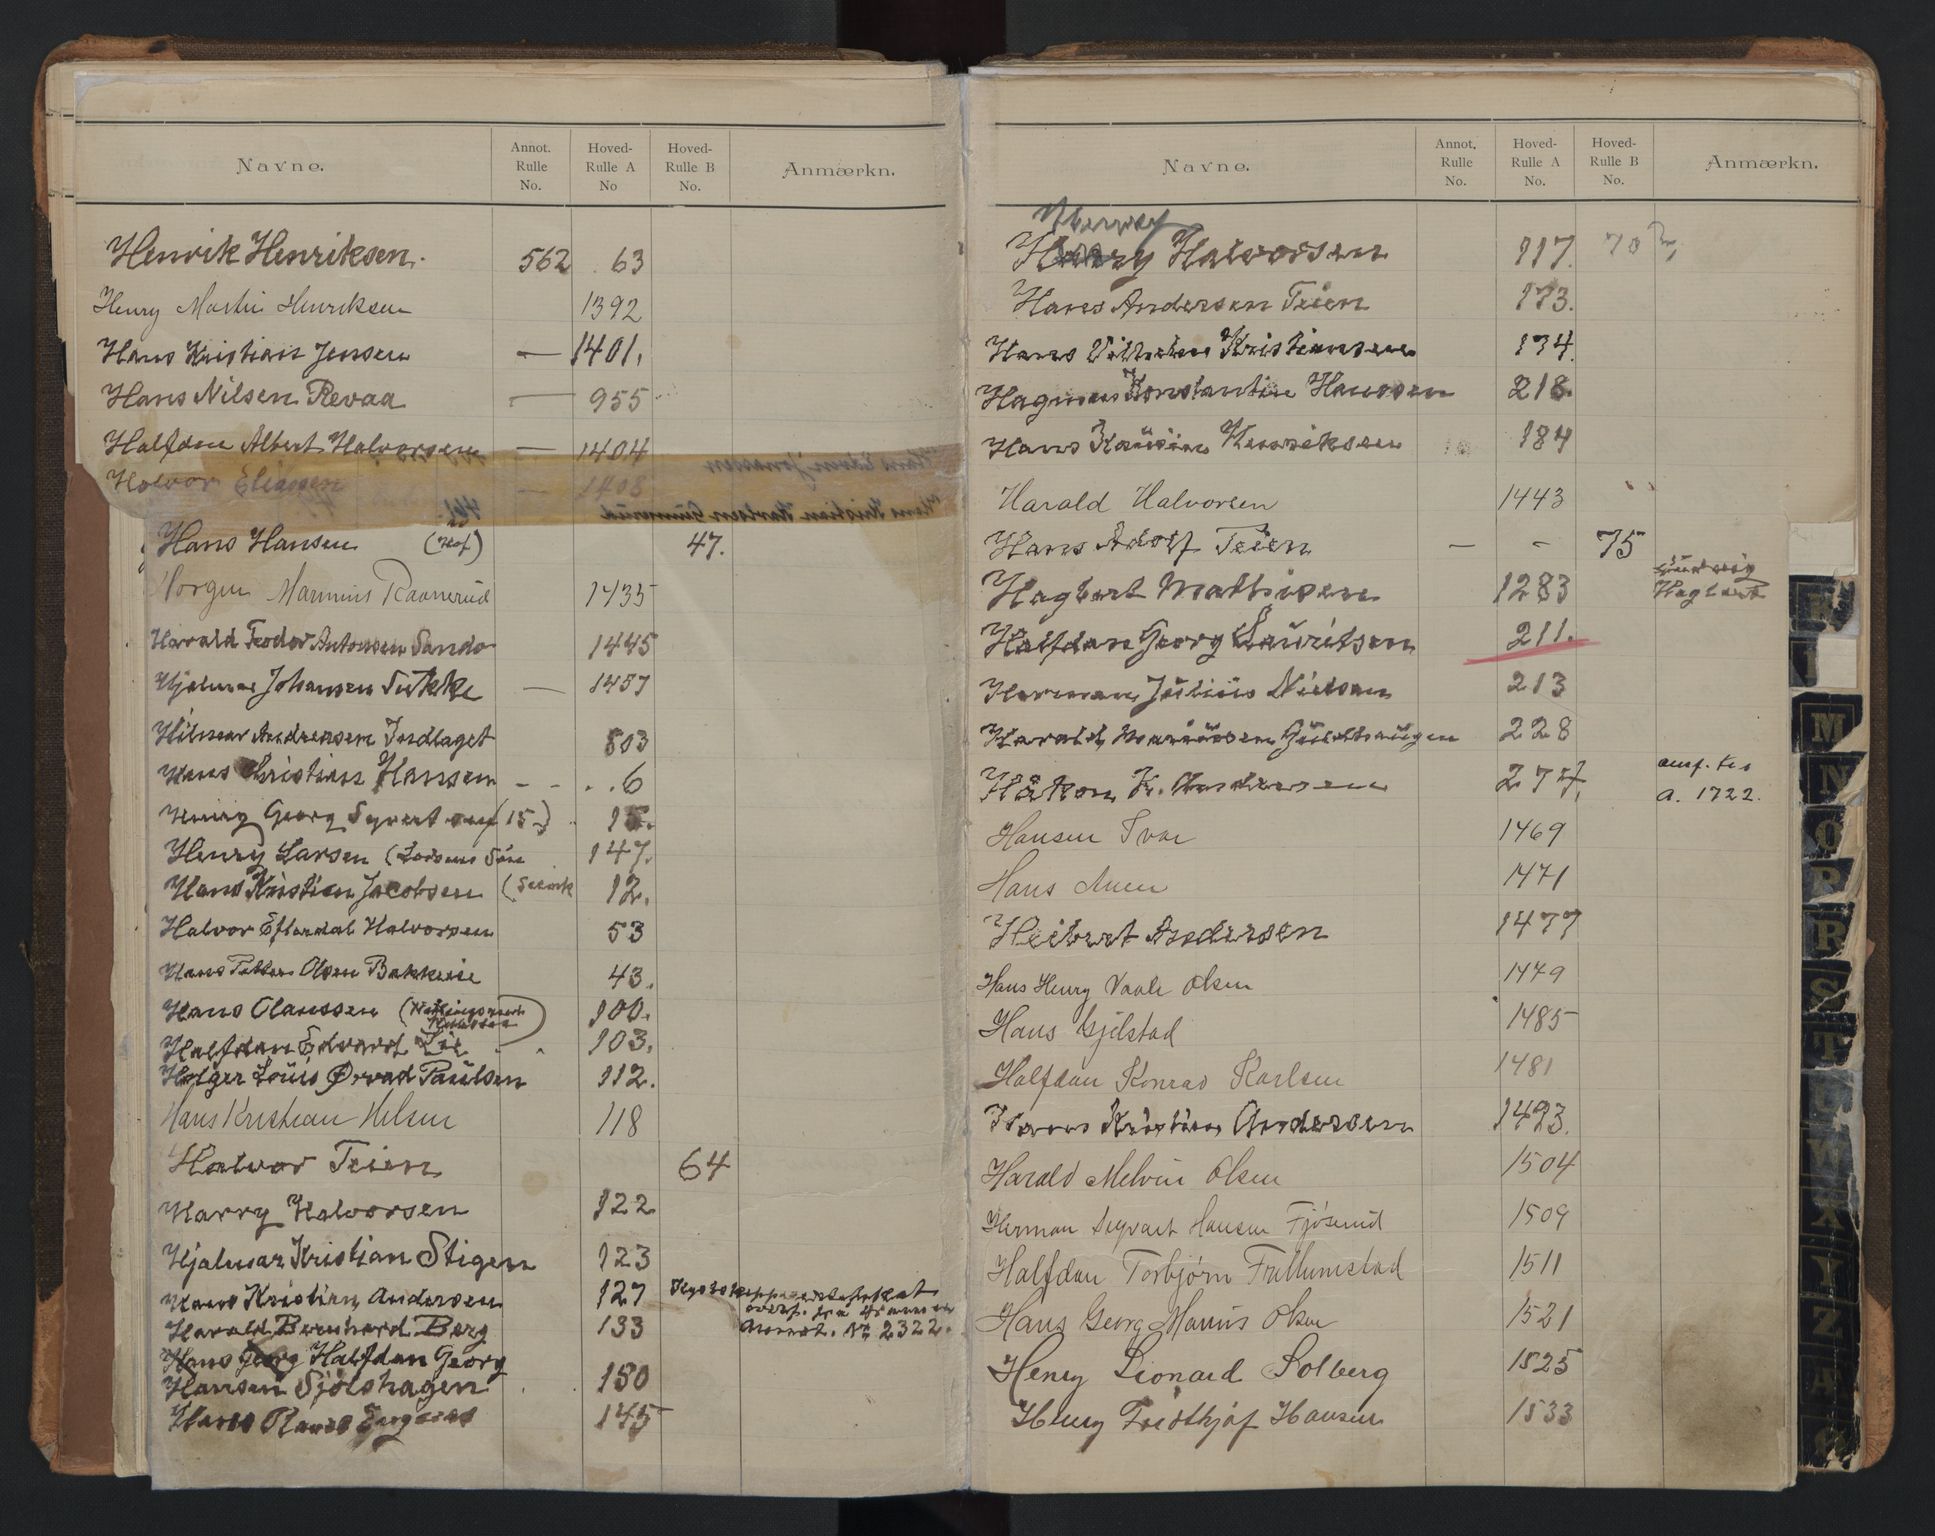 Navne. Annot. Rulle No. Hoved-Rulle A No Hoved-Rulle B No. Anmærkn.
Henrik Henriksen. 562 63
Henry Martin Henriksen 1392
Hans Kristian Jensen — 1401.
Hans Nilsen Revaa — 955
Halfdan Albert Halvorsen — 1404
Halvor Eliassen — 1408
Hans Hansen (Hof) 47.
Marinius Raanerud 1435
Harald Teodor Antonsen Sando 1445
Hjalmar Johansen Sukke — 1457
Hilmar Andreasen Indlaget 803
Hans Kristian Hansen - - . . 6
Henry Georg Syvert (15) 15.
Henry Larsen (Larsens Søn 147.
Hans Kristian Jacobsen 12.
Halvor Eftedal Halvorsen 53
Hans Petter Olsen Bakkeie 43.
Hans Olaussen 100.
Halfdan Edvard Lie 103.
Holger Louis Ørvad Paulsen 112.
Hans Kristian Nilsen 118
Halvor Teien 64
Harry Halvorsen 122
Hjalmar Kristian Stigen 123
Hans Kristian Andersen 127
Harald Bernhard Berg 133 Annot. № 2322.
Hans Georg Halfdan Georg
Hansen Sjølshagen 150
Hans 145
Navne. Annot. Rulle No. Hoved-Rulle A No. Hoved-Rulle B No. Anmærkn.
Harry Halvorsen 117. 70
Hans Andersen Teien 173.
Hans Vilhelm Kristiansen 174.
Hagman Konstantin Hanssen 218.
Hans Henriksen 184
Harald Halvorsen 1443
Hans Adolf Teien — - 75
Hagbart Mathisen 1283 Hagbart
Halfdan Georg Lauritsen 211.
Herman Julius Nielsen 213
Harald Mariusen 228
Håkon K. Andersen 277. a. 1722.
Hansen Ivar 1469
Hans Auen 1471
Heibert Andersen 1477
Hans Henry Vaale Olsen 1479
Hans Gjelstad 1485
Halfdan Konrad Karlsen 1481
Hans Kristian Andersen 1493.
Harald Melvin Olsen 1504
Herman Sigvart Hansen Fjøserud 1509
Halfdan Torbjørn Frillumstad 1511
Hans Georg Marius Olsen 1521
Henry Leonard Solberg 1525
Henry Fridthjof Hansen 1533
M
N
O
P
R
S
T
U
W
X
Y
Z